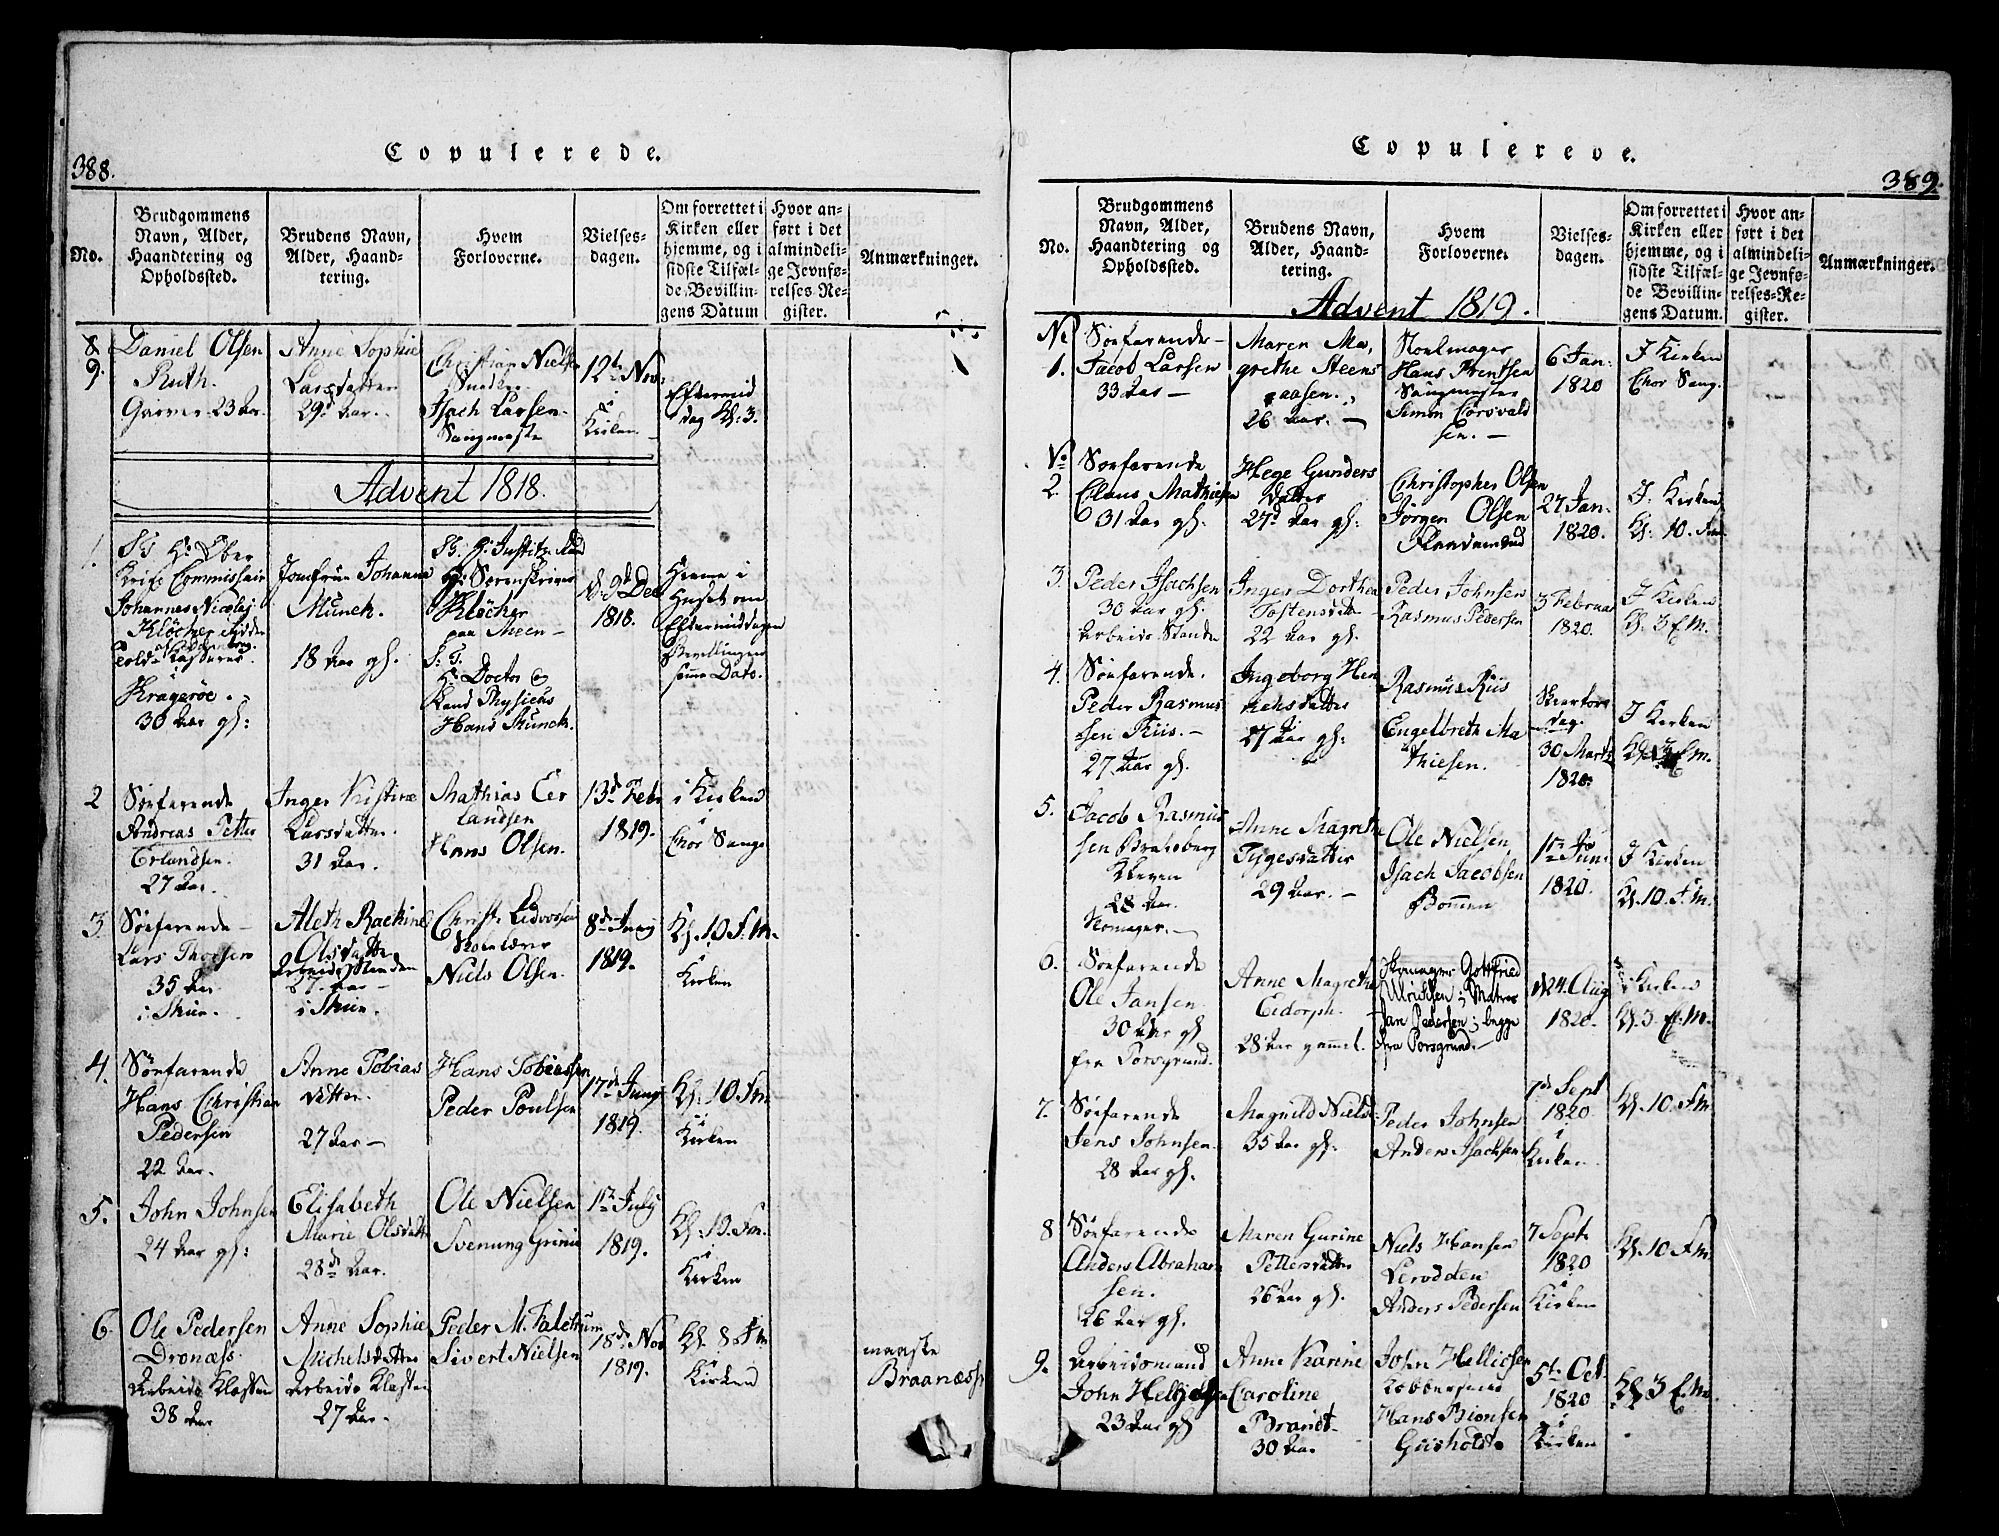 388.
Copulerede.
No.
Brudgommens
Navn, Alder,
Haandtering og
Opholdssted.
Brudens Navn,
Alder, Haand-
tering.
Hvem
Forloverne.
Vielses-
dagen.
Om forrettet i
Kirken eller
hjemme, og i
sidste Tilfæl-
de Bevillin-
gens Datum
Hvor an-
ført i det
almindeli-
ge Jevnfø-
relses-Re-
gister.
Anmærkninger.
8
9.
Daniel Olsen
Ruth.
Garver 23 Aar.
Anne Sophie
Larsdatter
29 Aar.
Christian Nielsen
Snedker
Isach Larsen
Sangmester
12te Nov.
i
Kirken
Eftermid
dag Kl: 3.
Advent 1818.
1.
Commissair
Johannes Nicolaj
Klöcker
Kragerøe.
30 Aar gl:
Jomfrue Johanne
Munch.
18 Aar gl.
Sorenskriver
Klöcker
paa Skeen
S. T.
Hr Doctor og
Land Physicus
Hans Munch.
d. 9de Dec
1818.
Hjeme i
Huset om
Eftermiddagen
Bevillingen
samme Dato.
2
Söefarende
Andreas Petter
Erlandsen.
27 Aar.
Inger Kistine
Larsdatter.
31 Aar.
Mathias Eer
landsen
Hans Olsen.
13de Febr
1819.
i Kirken
i
Chor Sang
3.
Söefarende
Lars Thorsen
35 Aar
i Skien.
Aleth Rachine
Olsdatter
Arbeids Standen
27 Aar
i Skien.
Niels Olsen.
8de Junij
1819.
Kl. 10 F.M.
i
Kirken
4.
Söefarende
Hans Christian
Pedersen
22 Aar.
Anne Tobias
datter.
27 Aar
Hans Tobiassen
Peder Poulsen
17de Junij
1819.
Kl: 10 Fm.
i
Kirken
5.
John Johnsen
24 Aar gl:
Elisabeth
Marie Olsdatter
28de Aar.
Ole Nielsen
Svenung Grinie
1ste Julij
1819.
Kl: 10. Fm.
i
Kirken
6.
Ole Pedersen
Dronæss.
Arbeids Klassen
38 Aar
Anne Sophie
Michelsdatter
Arbeids Klassen
27 Aar.
Peder M. Falckum
Sivert Nielsen
18de Nov
1819.
Kl 8 Fm
i
Kirken
maaske
Braanæss
Copulerede.
389.
No.
Brudgommens
Navn, Alder,
Haandtering og
Opholdssted.
Brudens Navn,
Alder, Haand-
tering.
Hvem
Forloverne.
Vielses-
dagen.
Om forrettet i
Kirken eller
hjemme, og i
sidste Tilfæl-
de Bevillin-
gens Datum.
Hvor an-
ført i det
almindeli-
ge Jevnfø-
relses-Re-
gister.
Anmærkninger.
Advent 1819.
No
1.
Söefarende
Jacob Larsen
33 Aar
Maren Ma,
grethe Steens
aasen.
26 Aar.
Hans Frentsen
Sangmester
Simon Corsvald
sen.
6 Jan:
1820
I Kirken
Chor Sang.
No
2.
Söefarende
Claus Mathiesen
31 Aar gl.
Hege Gunders
datter
27de Aar gl:
Christopher Olsen
Jörgen Olsen
27 Jan.
1820.
I. Kirken
Kl. 10. Fm
3.
Peder Isachsen
30 Aar gl.
Arbeids Standen
Inger Dorthea
Tostensdatter
22 Aar gl.
Peder Johnsen
Rasmus Pedersen
3 Februar
1820.
I Kirken
Kl. 3 E.M.
4.
Söefarende.
Peder Rasmus
sen Riis.
27 Aar gl.
Ingeborg Hen
richsdatter
27 Aar gl:
Rasmus Riis
Engelbreth Ma
thiesen.
Skiertors
dag.
30 Marts
1820.
I Kirken
Kl. 3 E.M.
5.
Jacob Rasmus
sen Brekeberg
Kleven
28 Aar.
Skomager.
Anne Magrethe
Tygesdatter
29 Aar.
Ole Nielsen
Isach Jacobsen
Bommen
1ste Jun:
1820.
I Kirken
Kl. 10. F.m.
6.
Söefarende
Ole Jansen
30 Aar gl
fra Porsgrund.
Anne Magrethe
Eidorph.
28 Aar gammel.
Skomager Gottfried
Ulrichsen; Matros
Jan Pedersen; begge
fra Porsgrund.
d 24. Aug
1820.
i Kirken
Kl. 3. E.M.
7.
Söefarende
Jens Johnsen.
28 Aar gl.
Magnild Niels
35 Aar gl.
Peder Johnsen
Anders Isachsen
7de Sept
1820
i
Kirken.
Kl. 10. F.M.
8
Söefarende
Anders Abraham
sen.
26 Aar gl.
Maren Gurine
Pettersdatter
26 Aar gl.
Niels Hansen
Versodden
Anders Pedersen
7 Sept.
1820
i
Kirken
Kl. 10 F.M.
9.
Arbeidsmand
John Helliesen
23 Aar gl
Anne Karine
Caroline
Brandt
30 Aar
John Helliesen
Kobbersmed
Hans Bionsen
Griisholdt
5te Oct.
1820
i
Kirken
Kl 3 E.M.